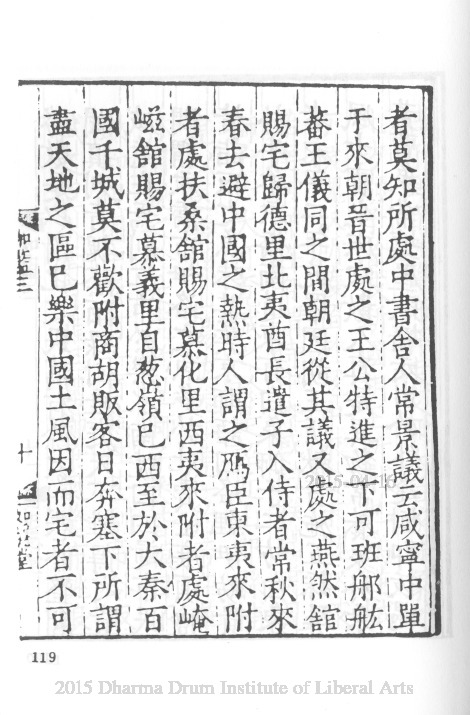 者莫知所處中書舍人常景議云咸寧中單
于來朝晉世處之王公特進之下可班郍
蕃王儀同之間朝廷從其議又處之燕然舘
賜宅歸德里北夷酋長遣子入侍者常秋來
春去避中國之熱時人謂之鴈臣東夷來附
者處扶桑舘賜宅慕化里西夷來附者處崦
嵫舘賜宅慕義里自葱領已西至於大秦百
國千城莫不歡附商胡販客日奔塞下所謂
盡天地之區已樂中國土風因而宅者不可
十
119
2015-04-16
2015 Dharma Drum Institute of Liberal Arts